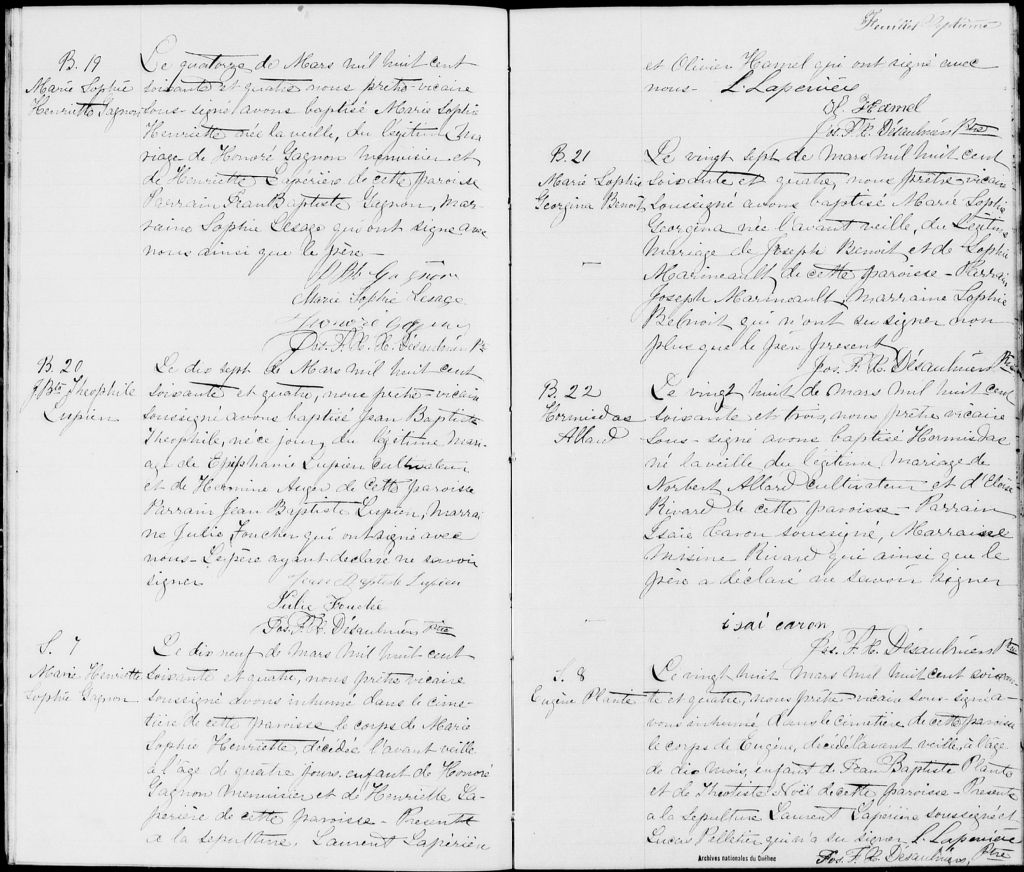 B. 19
Marie Sophie
Henriette Gagnon
Le quatorze de Mars mil huit cent
soixante et quatre nous prêtre-vicaire
sous-signé avons baptisé Marie Sophie
Henriette née la veille, du légitime ma-
riage de Honoré Gagnon menuisier et
de Henriette Lapérière de cette paroisse
Parrain Jean Baptiste Gagnon, mar-
raine Sophie Lesage qui ont signé avec
nous ainsi que le père -
J Bte Gagnon
Marie Sophie Lesage
Honoré Gagnon
Jos. F. X. Désaulniers Ptre
B. 20
J Bte Theophile
Lupien
Le dix sept de Mars mil huit cent
soixante et quatre, nous prêtre-vicaire
soussigné avons baptisé Jean Baptiste
Théophile, né ce jour, du légitime mari-
age de Epiphanie Lupien cultivateur
et de Hermine Auger de cette paroisse
Parrain Jean Baptiste Lupien, marrai
ne Julie Foucher qui ont signé avec
nous - Le père ayant déclaré ne savoir
signer
Jean Baptiste Lupien
Julie Fouché
Jos. F. X. Désaulniers Ptre
S. 7
Marie Henriette
Sophie Gagnon
Le dix neuf de Mars mil huit-cent
soixante et quatre, nous prêtre vicaire
soussigné avons inhumé dans le cime-
tière de cette paroisse le corps de Marie
Sophie Henriette, décédée l'avant veille
à l'âge de quatre jours, enfant de Honoré
Gagnon menuisier et de Henriette La-
périère de cette paroisse - Présents
à la sépulture, Laurent Lapérière
Feuillet Septième
et Olivier Hamel qui ont signé avec
nous - L. Laperière
O. Hamel
Jos. F. X. Désaulniers Ptre
B. 21
Marie Sophie
Georgina Benoit
Le vingt sept de mars mil huit cent
soixante et quatre, nous prêtre-vicaire
soussigné avons baptisé Marie Sophie
Georgina née l'avant veille, du légitime
Mariage de Joseph Benoit et de Sophie
Marineault de cette paroisse - Parrain
Joseph Marineault, marraine Sophie
Benoit qui n'ont su signer non
plus que le père présent
Jos. F. X. Désaulniers Ptre
B. 22
Hormisdas
Allard
Le vingt huit de mars mil huit cent
soixante et trois, nous prêtre vicaire
sous-signé avons baptisé Hormisdas
né la veille du légitime mariage de
Norbert Allard cultivateur et d'Eloïse
Rivard de cette paroisse - Parrain
Isaïe Caron soussigné, Marraine
Rivard qui ainsi que le
père a déclaré ne savoir signer
isai caron
Jos. F. X. Désaulniers Ptre
S. 8
Eugène Plante
Le vingt huit mars mil huit cent soixan-
te et quatre, nous prêtre-vicaire sous-signé a-
vons inhumé dans le cimetière de cette paroisse
le corps de Eugène, décédé l'avant veille, à l'âge
de dix mois, enfant de Jean Baptiste Plante
et de Theotiste Noël de cette paroisse - Présents
à la sépulture Laurent Lapérière soussigné et
Lucas Pelletier qui n'a su signer. L. Laperière
Jos. F. X. Désaulniers, Ptre
Archives nationales du Québec